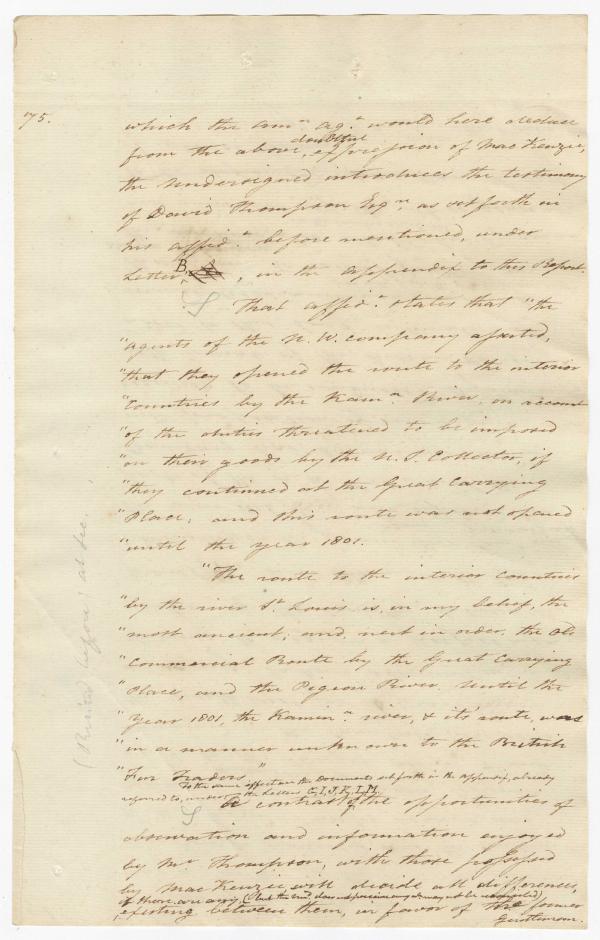 75.
which the Am.n Ag.t would here deduce
from the above doubtful expression of MacKenzie,
the Undersigned introduces the testimony
of David Thompson Esq.r as set forth in
his affid.t before mentioned, under
Letter B, in the appendix to this Report.
That affid.t states that "the
"agents of the N. W. company asserted,
"that they opened the route to the interior
"Countries by the Kam.a River, on account
"of the duties threatened to be imposed
"on their goods by the U. S. Collector, if
"they continued at the Great Carrying
"Place; and this route was not opened
"until the year 1801.
"The route to the interior countries
"by the river St Louis is, in my belief, the
"most ancient; and, next in order, the old
"Commercial Route by the Great Carrying
"Place, and the Pigeon River. Until the
"Year 1801, the Kamin.a river, & it's route, was
"in a manner unknown to the British
"Fur Traders."
To the same effect are the Documents set forth in the appendix, already
referred to, under the Letters G, I, J, K, L, M.
A contrast of the opportunities of
observation and information enjoyed
by Mr Thompson, with those possessed
by MacKenzie, will decide all differences,
if there are any, (but the
existing between them, in favor of the former
Gentleman.
(Recited before) at